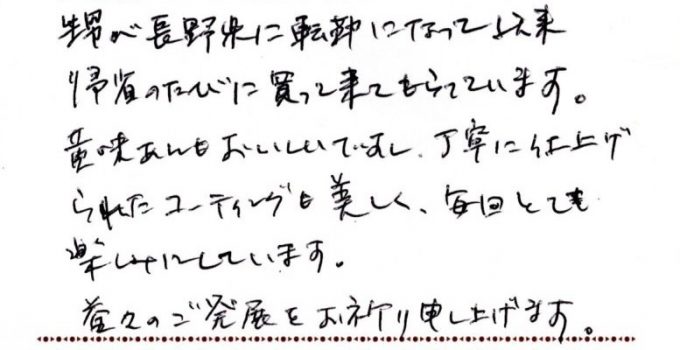 甥が長野県に転勤になって以来
帰省のたびに買って来てもらっています。
黄味あんもおいしいですし、丁寧に仕上げ
られたコーティングも美しく、毎回とても
楽しみにしています。
益々のご発展をお祈り申し上げます。